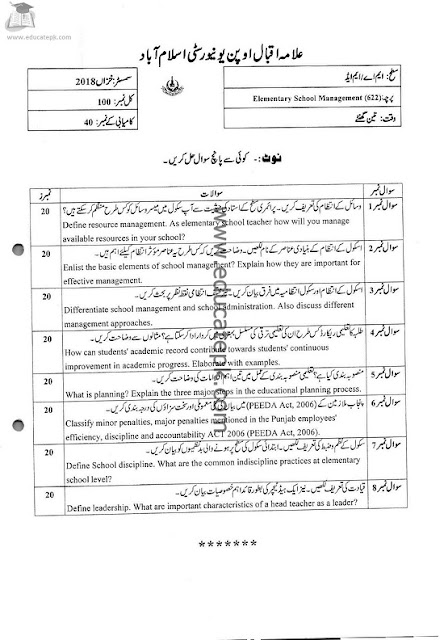 www.educatepk.com
علامہ اقبال اوپن یونیورسٹی اسلام آباد
سطح: ایم اے/ ایم ایڈ
سمسٹر: خزاں 2018
پرچہ: Elementary School Management (622)
کل نمبر: 100
وقت: تین گھنٹے
کامیابی کے نمبر: 40
نوٹ:- کوئی سے پانچ سوال حل کریں۔
سوال نمبر سوالات نمبرز
سوال نمبر 1 وسائل کے انتظام کی تعریف کریں۔ پرائمری سطح کے استاد کی حیثیت سے آپ سکول میں میسر وسائل کو کس طرح منظم کر سکتے ہیں؟ 20
Define resource management. As elementary school teacher how will you manage
available resources in your school?
سوال نمبر 2 اسکول کے انتظام کے بنیادی عناصر کے نام لکھیں۔ وضاحت کریں کہ کس طرح یہ عناصر مؤثر انتظام کیلئے اہم ہیں۔ 20
Enlist the basic elements of school management? Explain how they are important for
effective management.
سوال نمبر 3 اسکول کے انتظام اور سکول انتظامیہ میں فرق بیان کریں۔ انتظامی نقطہ نظر پر بحث کریں۔ 20
Differentiate school management and school administration. Also discuss different
management approaches.
سوال نمبر 4 طلبہ کا تعلیمی ریکارڈ کس طرح ان کی تعلیمی ترقی کی مسلسل بہتری میں کردار ادا کر سکتا ہے؟ مثالوں سے وضاحت کریں۔ 20
How can students' academic record contribute towards students' continuous
improvement in academic progress. Elaborate with examples.
سوال نمبر 5 منصوبہ بندی کیا ہے؟ تعلیمی منصوبہ بندی کے عمل میں تین اہم اقدامات کی وضاحت کریں۔ 20
What is planning? Explain the three major steps in the educational planning process.
سوال نمبر 6 پنجاب ملازمین کے (PEEDA Act, 2006) میں بیان کی گئی معمولی اور سخت سزاؤں کی درجہ بندی کریں۔ 20
Classify minor penalties, major penalties mentioned in the Punjab employees'
efficiency, discipline and accountability ACT 2006 (PEEDA Act, 2006).
سوال نمبر 7 سکول کے نظم و ضبط کی تعریف لکھیں۔ ابتدائی سکول کی سطح پر ہونے والی بدنظمیوں کو بیان کریں۔ 20
Define School discipline. What are the common indiscipline practices at elementary
school level?
سوال نمبر 8 قیادت کی تعریف لکھیں۔ نیز ایک ہیڈ ٹیچر کی بطور قائد اہم خصوصیات بیان کریں۔ 20
Define leadership. What are important characteristics of a head teacher as a leader?
*******
www.educatepk.com